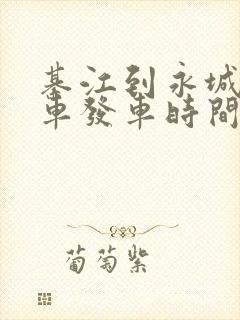 綦江到永城
車發車時間
葡萄紫